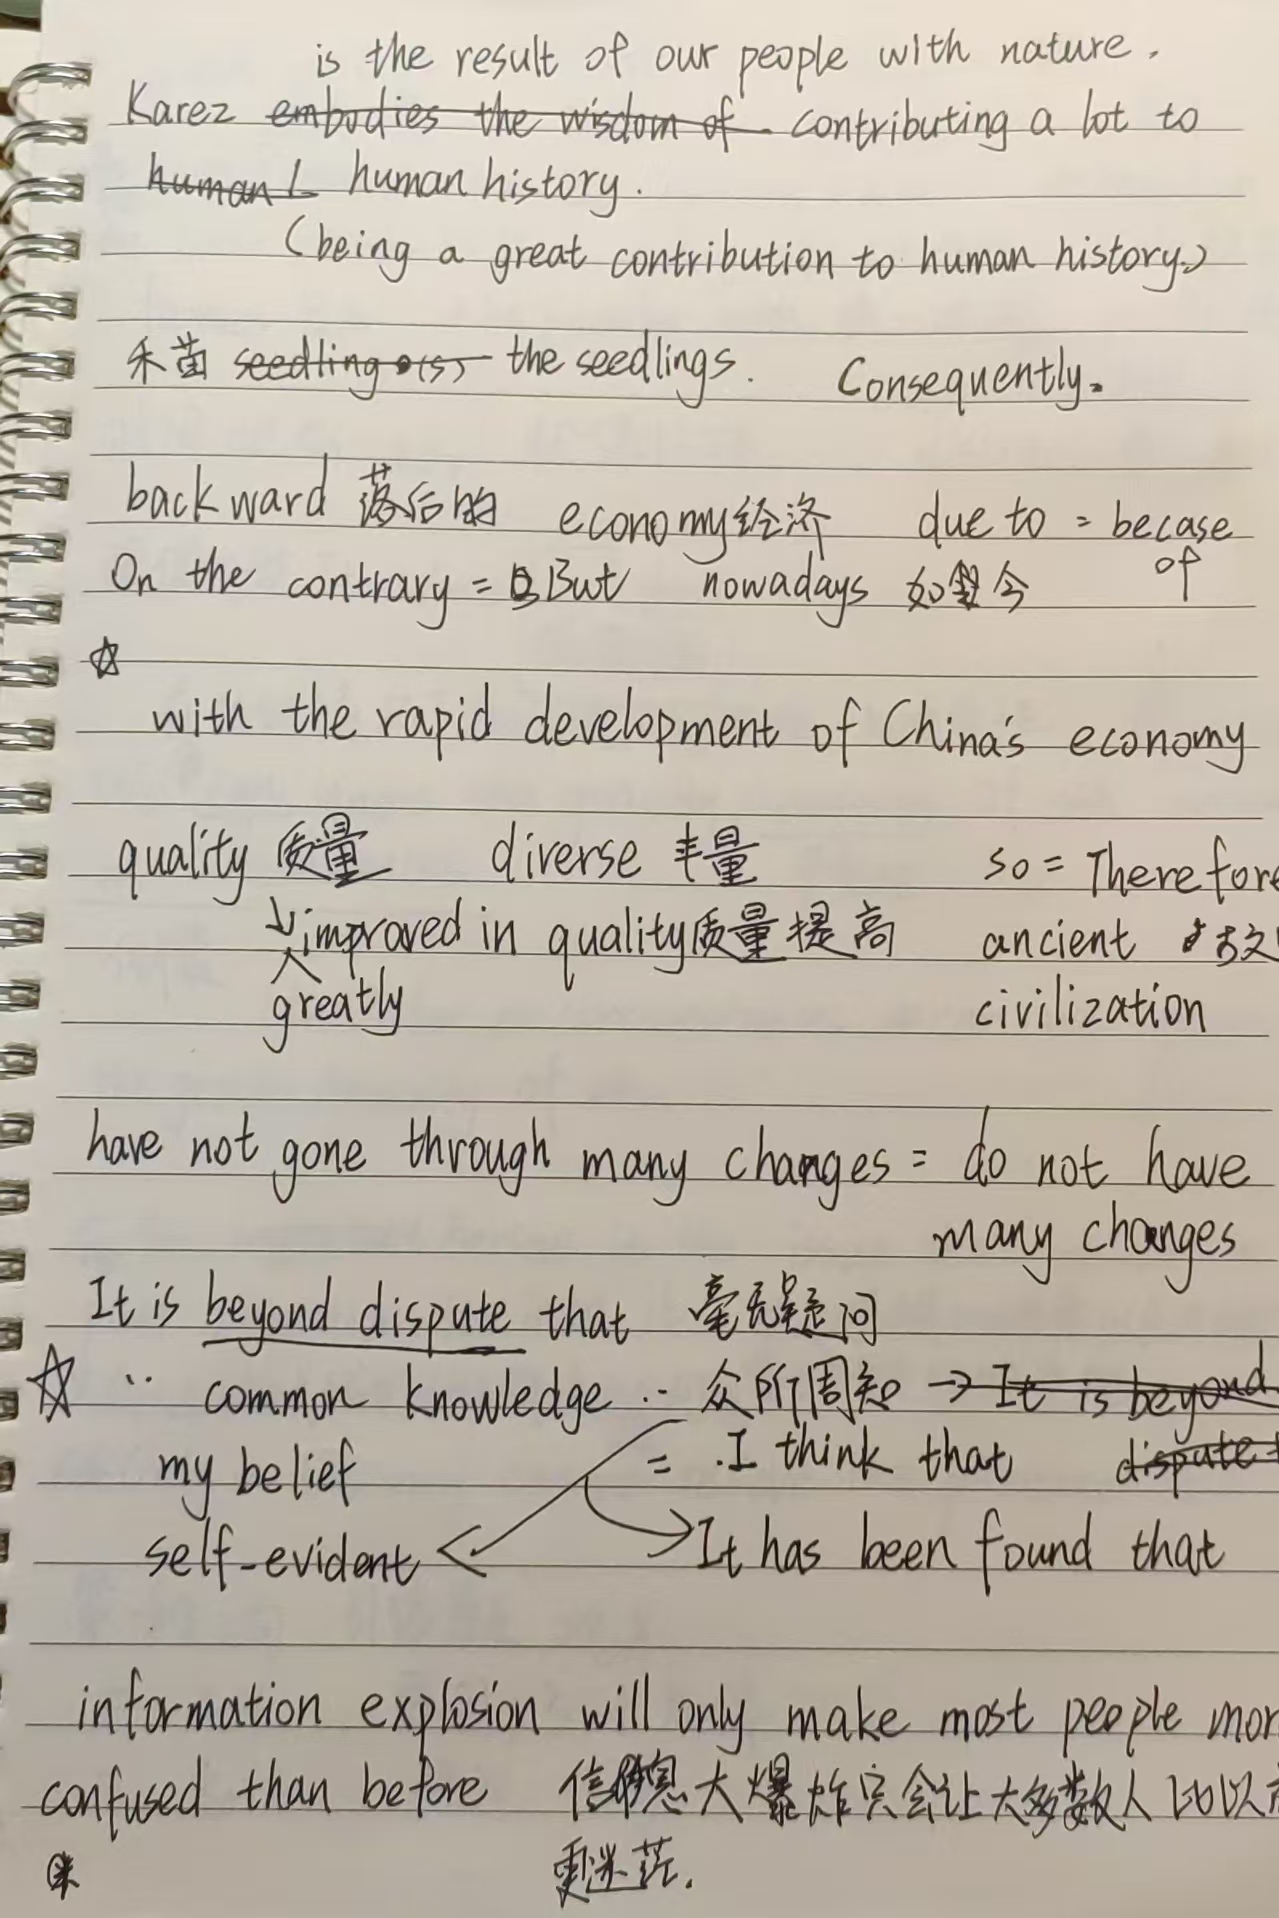 is the result of our people with nature.
Karez embodies the wisdom of contributing a lot to
human L human history.
(being a great contribution to human history.)
禾苗 seedling(s) the seedlings. Consequently.
backward 落后的 economy经济 due to = becase
of
On the contrary = But nowadays 如今
☆
with the rapid development of China's economy
quality 质量 diverse 丰量 so = Therefore
improved in quality质量提高 ancient 古文
greatly civilization
have not gone through many changes = do not have
many changes
It is beyond dispute that 毫无疑问
☆ ·· common knowledge ·· 众所周知 → It is beyond
my belief = .I think that dispute
self-evident It has been found that
information explosion will only make most people mor
confused than before 信息大爆炸只会让大多数人比以
更迷茫.